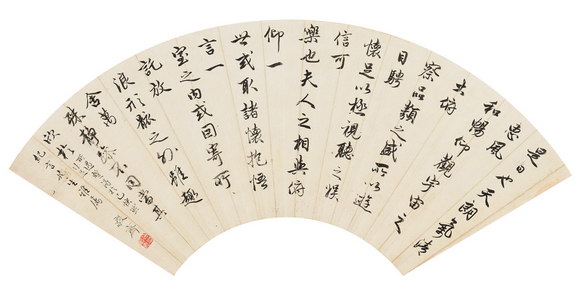 是日也天朗氣清
惠風
和暢仰觀宇宙之
大俯
察品類之盛所以遊
目騁
懷足以極視聽之娛
信可
樂也夫人之相與俯
仰一
世或取諸懷抱悟
言一
室之內或因寄所
託放
浪形骸之外雖趣
舍萬
殊靜躁不同當其
欣於
先生雅屬